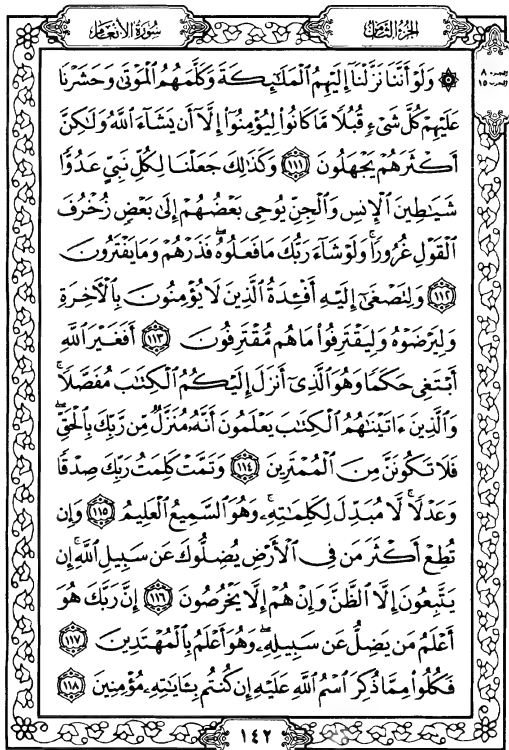 سورة الأنعام
الجزء الثامن
۞ وَلَوْ أَنَّنَا نَزَّلْنَآ إِلَيْهِمُ ٱلْمَلَـٰٓئِكَةَ وَكَلَّمَهُمُ ٱلْمَوْتَىٰ وَحَشَرْنَا
عَلَيْهِمْ كُلَّ شَىْءٍ قُبُلًا مَّا كَانُوا۟ لِيُؤْمِنُوٓا۟ إِلَّآ أَن يَشَآءَ ٱللَّهُ وَلَـٰكِنَّ
أَكْثَرَهُمْ يَجْهَلُونَ ١١١ وَكَذَٰلِكَ جَعَلْنَا لِكُلِّ نَبِىٍّ عَدُوًّا
شَيَـٰطِينَ ٱلْإِنسِ وَٱلْجِنِّ يُوحِى بَعْضُهُمْ إِلَىٰ بَعْضٍ زُخْرُفَ
ٱلْقَوْلِ غُرُورًا ۚ وَلَوْ شَآءَ رَبُّكَ مَا فَعَلُوهُ ۖ فَذَرْهُمْ وَمَا يَفْتَرُونَ
١١٢ وَلِتَصْغَىٰٓ إِلَيْهِ أَفْـِٔدَةُ ٱلَّذِينَ لَا يُؤْمِنُونَ بِٱلْـَٔاخِرَةِ
وَلِيَرْضَوْهُ وَلِيَقْتَرِفُوا۟ مَا هُم مُّقْتَرِفُونَ ١١٣ أَفَغَيْرَ ٱللَّهِ
أَبْتَغِى حَكَمًا وَهُوَ ٱلَّذِىٓ أَنزَلَ إِلَيْكُمُ ٱلْكِتَـٰبَ مُفَصَّلًا ۚ
وَٱلَّذِينَ ءَاتَيْنَـٰهُمُ ٱلْكِتَـٰبَ يَعْلَمُونَ أَنَّهُۥ مُنَزَّلٌ مِّن رَّبِّكَ بِٱلْحَقِّ ۖ
فَلَا تَكُونَنَّ مِنَ ٱلْمُمْتَرِينَ ١١٤ وَتَمَّتْ كَلِمَتُ رَبِّكَ صِدْقًا
وَعَدْلًا ۚ لَّا مُبَدِّلَ لِكَلِمَـٰتِهِۦ ۚ وَهُوَ ٱلسَّمِيعُ ٱلْعَلِيمُ ١١٥ وَإِن
تُطِعْ أَكْثَرَ مَن فِى ٱلْأَرْضِ يُضِلُّوكَ عَن سَبِيلِ ٱللَّهِ ۚ إِن
يَتَّبِعُونَ إِلَّا ٱلظَّنَّ وَإِنْ هُمْ إِلَّا يَخْرُصُونَ ١١٦ إِنَّ رَبَّكَ هُوَ
أَعْلَمُ مَن يَضِلُّ عَن سَبِيلِهِۦ ۖ وَهُوَ أَعْلَمُ بِٱلْمُهْتَدِينَ ١١٧
فَكُلُوا۟ مِمَّا ذُكِرَ ٱسْمُ ٱللَّهِ عَلَيْهِ إِن كُنتُم بِـَٔايَـٰتِهِۦ مُؤْمِنِينَ ١١٨
١٤٢